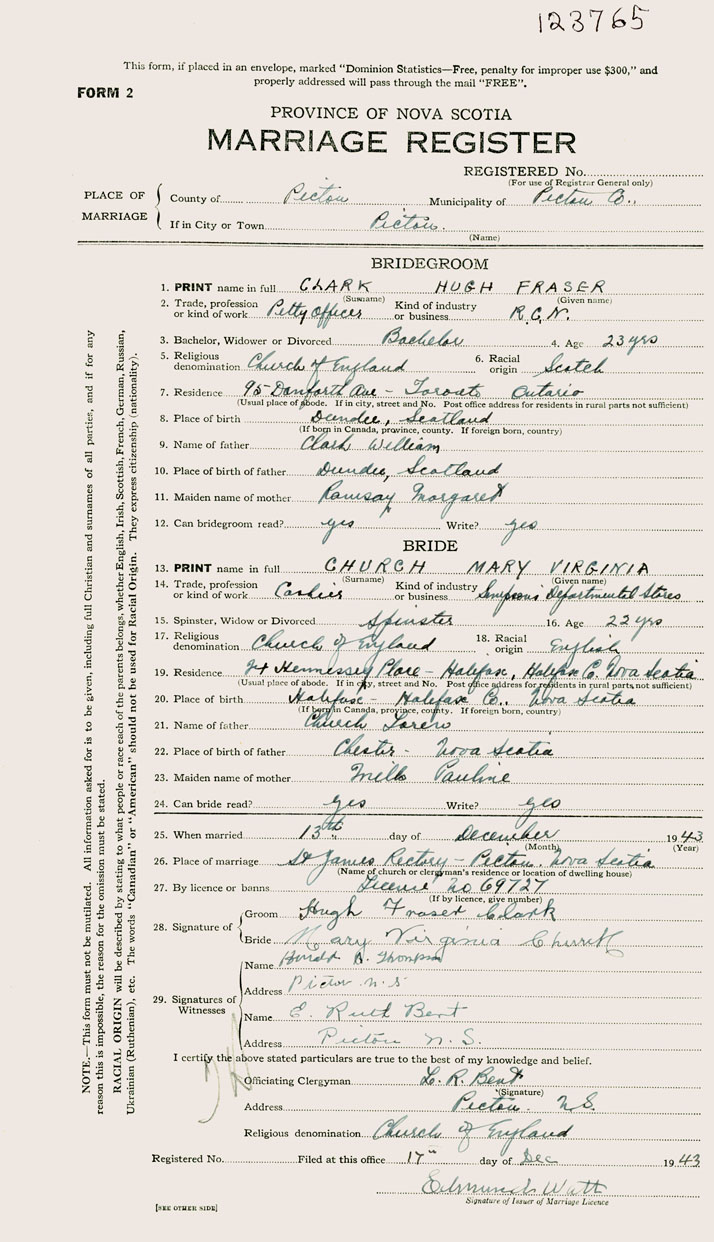 123765
This form, if placed in an envelope, marked “Dominion Statistics—Free, penalty for improper use $300,” and
properly addressed will pass through the mail “FREE”.
FORM 2
PROVINCE OF NOVA SCOTIA
MARRIAGE REGISTER
REGISTERED No.
(For use of Registrar General only)
PLACE OF MARRIAGE
County of Pictou Municipality of Pictou Co.,
If in City or Town Pictou.
(Name)
BRIDEGROOM
1. PRINT name in full CLARK HUGH FRASER
(Surname) (Given name)
2. Trade, profession or kind of work Petty Officer Kind of industry or business R.C.N.
3. Bachelor, Widower or Divorced Bachelor 4. Age 23 yrs
5. Religious denomination Church of England 6. Racial origin Scotch
7. Residence 95 Danforth Ave - Toronto Ontario
(Usual place of abode. If in city, street and No. Post office address for residents in rural parts not sufficient)
8. Place of birth Dundee, Scotland
(If born in Canada, province, county. If foreign born, country)
9. Name of father Clark William
10. Place of birth of father Dundee, Scotland
11. Maiden name of mother Ramsay Margaret
12. Can bridegroom read? yes Write? yes
BRIDE
13. PRINT name in full CHURCH MARY VIRGINIA
(Surname) (Given name)
14. Trade, profession or kind of work Cashier Kind of industry or business Simpsons Departmental Stores
15. Spinster, Widow or Divorced Spinster 16. Age 22 yrs
17. Religious denomination Church of England 18. Racial origin English
19. Residence 24 Hennessey Place - Halifax, Halifax C. Nova Scotia
(Usual place of abode. If in city, street and No. Post office address for residents in rural parts not sufficient)
20. Place of birth Halifax - Halifax Co., Nova Scotia
(If born in Canada, province, county. If foreign born, country)
21. Name of father Church Loren
22. Place of birth of father Chester - Nova Scotia
23. Maiden name of mother Mills Pauline
24. Can bride read? yes Write? yes
25. When married 13th day of December 1943
(Month) (Year)
26. Place of marriage St James Rectory - Pictou. Nova Scotia
(Name of church or clergyman's residence or location of dwelling house)
27. By licence or banns License No 69727
(If by licence, give number)
28. Signature of
Groom Hugh Fraser Clark
Bride Mary Virginia Church
29. Signatures of Witnesses
Name Donald A. Thompson
Address Pictou N.S.
Name E. Ruth Bent
Address Pictou N.S.
I certify the above stated particulars are true to the best of my knowledge and belief.
Officiating Clergyman L. R. Bent
(Signature)
Address Pictou. N.S.
Religious denomination Church of England
Registered No. Filed at this office 17" day of Dec 1943
Edmund Watt
Signature of Issuer of Marriage Licence
[SEE OTHER SIDE]
NOTE.—This form must not be mutilated. All information asked for is to be given, including full Christian and surnames of all parties, and if for any
reason this is impossible, the reason for the omission must be stated.
RACIAL ORIGIN will be described by stating to what people or race each of the parents belongs, whether English, Irish, Scottish, French, German, Russian,
Ukrainian (Ruthenian), etc. The words “Canadian” or “American” should not be used for Racial Origin. They express citizenship (nationality).